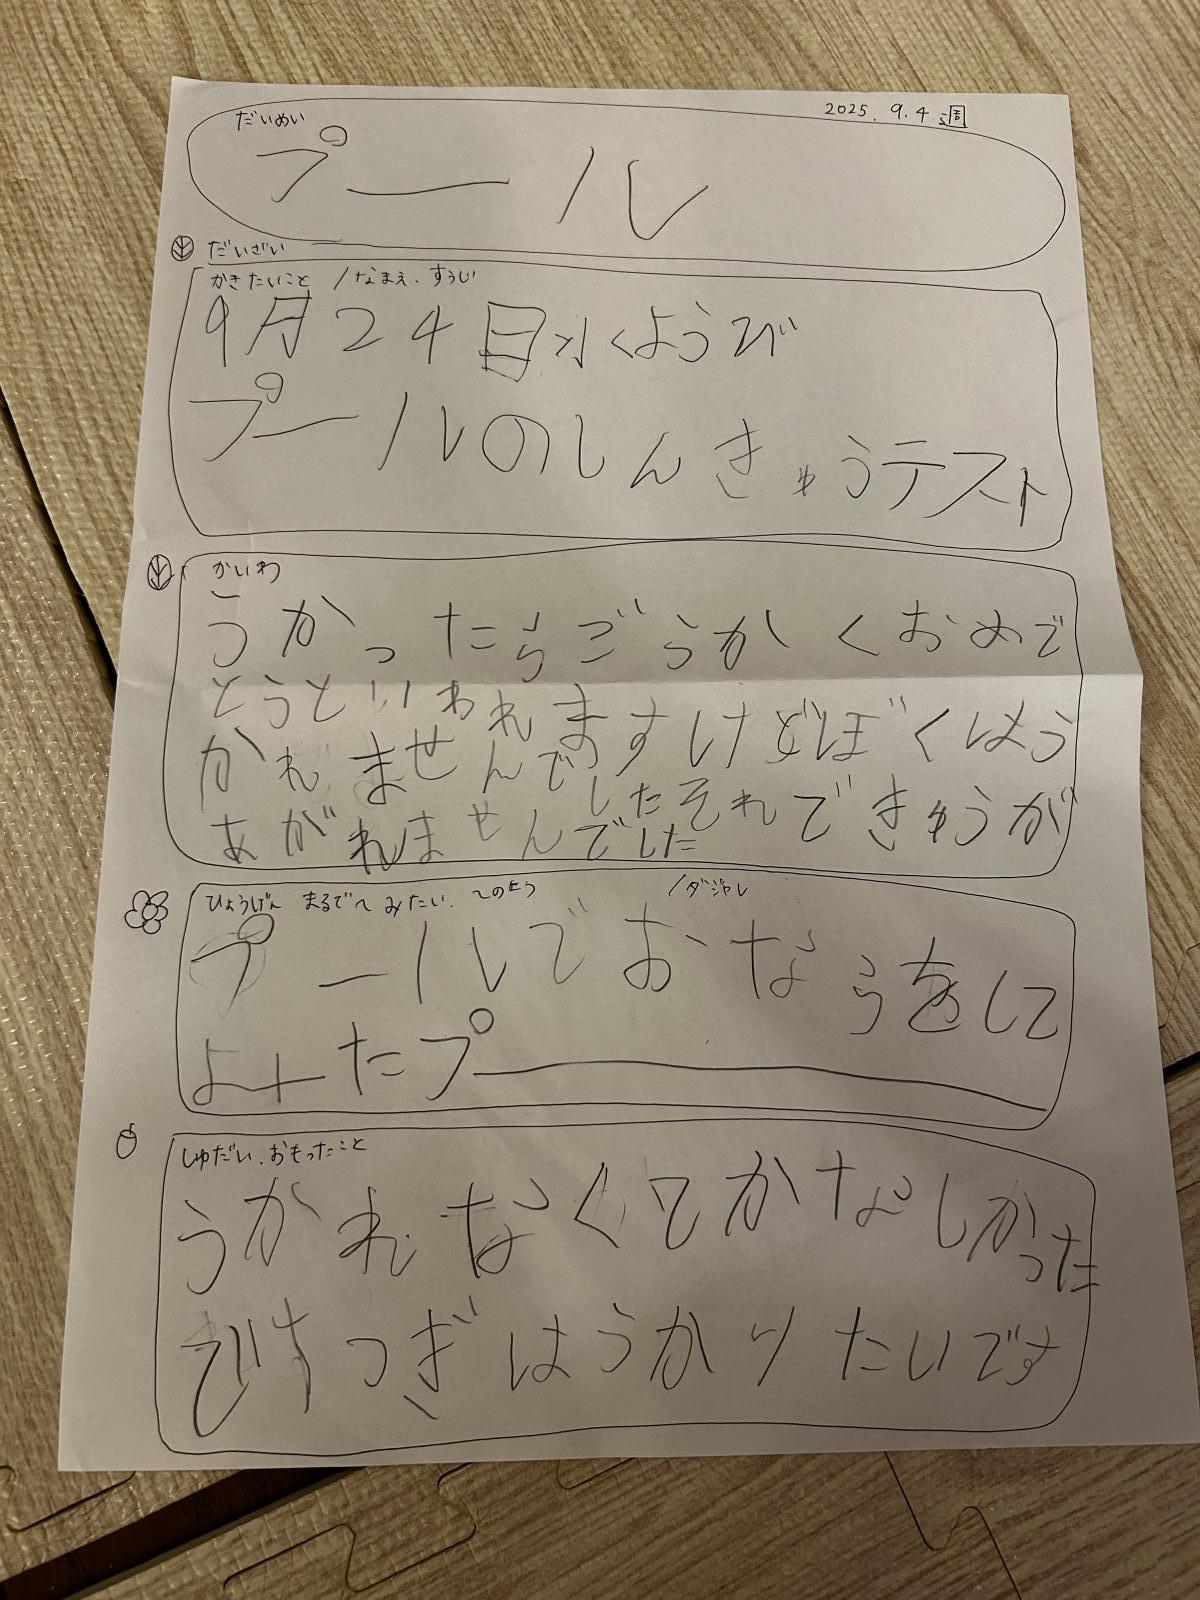 2025. 9. 4週
だいめい
プール
だいざい
かきたいこと / なまえ、すうじ
9月24日水くようび
プールのしんきゅうテスト
かいわ
うかったらごうかくおめで
とうといわれますけどぼくはう
かれませんで
したそれできゅうが
あがれませんでした
ひょうげん まるで〜 みたい、〜のよう / ダジャレ
プールでおならをして
よ
たプー
しゅだい、おもったこと
うかれなくてかなしかった
ですつぎはうかりたいです